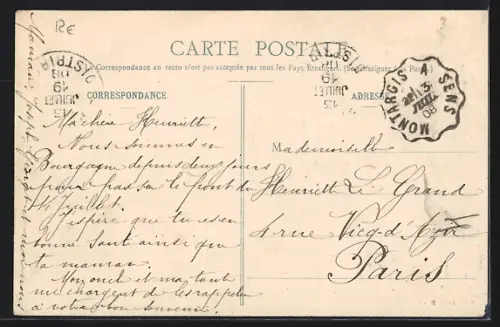 RE
CARTE POSTALE
La Correspondance au recto n'est pas acceptée par tous les Pays Étrangers. (Se renseigner à la Poste).
CORRESPONDANCE
ADRES
MONTARGIS A SENS
13
JUIL
08
13
JUILLET
19
08
13
JUILLET
19
Ma chère Henriette,
Nous sommes en
Bourgogne depuis deux jours
pour passer le pont du
14 Juillet.
J'espère que tu es en
bonne Santé ainsi que
ta maman.
Mon oncle et ma tante
me chargent de les rappeler
à votre bon souvenir.
Mademoiselle
Henriette Le Grand
4 rue Vicq-d'Azir
Paris